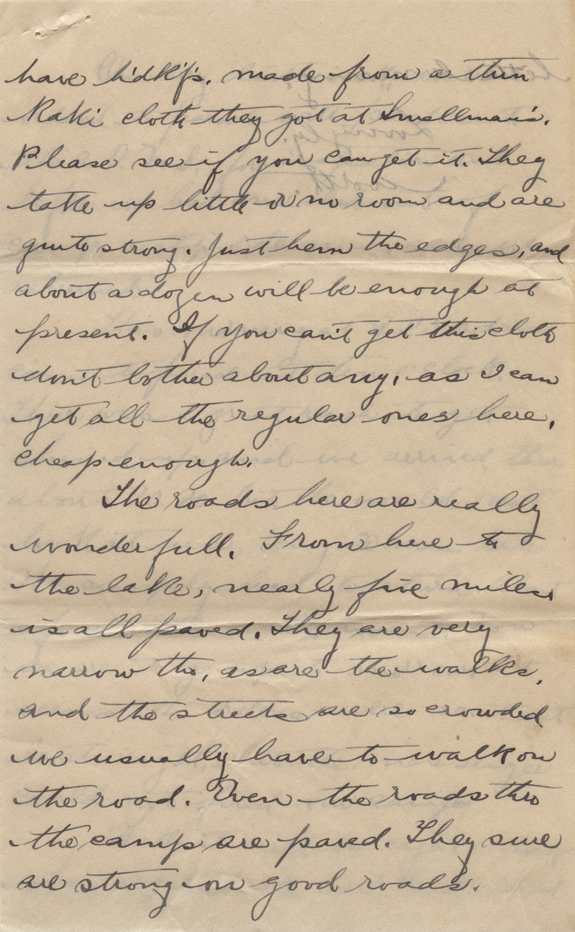 have h'dk'fs. made from a thin
Kaki cloth they got at Smallman's.
Please see if you can get it. They
take up little or no room and are
quite strong. Just hem the edges, and
about a dozen will be enough at
present. If you can't get this cloth
don't bother about any, as I can
get all the regular ones here,
cheap enough.
The roads here are really
wonderfull. From here to
the lake, nearly five miles
is all paved. They are very
narrow tho, as are the walks,
and the streets are so crowded
we usually have to walk on
the road. Even the roads thro
the camp are paved. They sure
are strong on good roads.